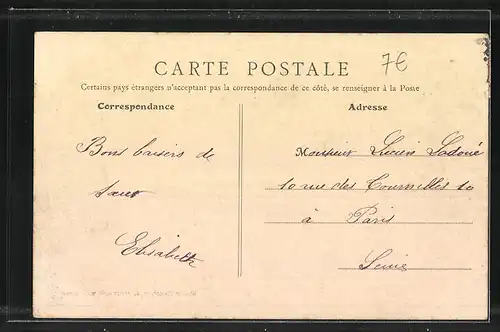 7€
CARTE POSTALE
Certains pays étrangers n'acceptant pas la correspondance de ce côté, se renseigner à la Poste
Correspondance
Adresse
Bons baisers de
Elisabeth
Monsieur Lucien
10 rue des Tournelles 10
à Paris
Seine